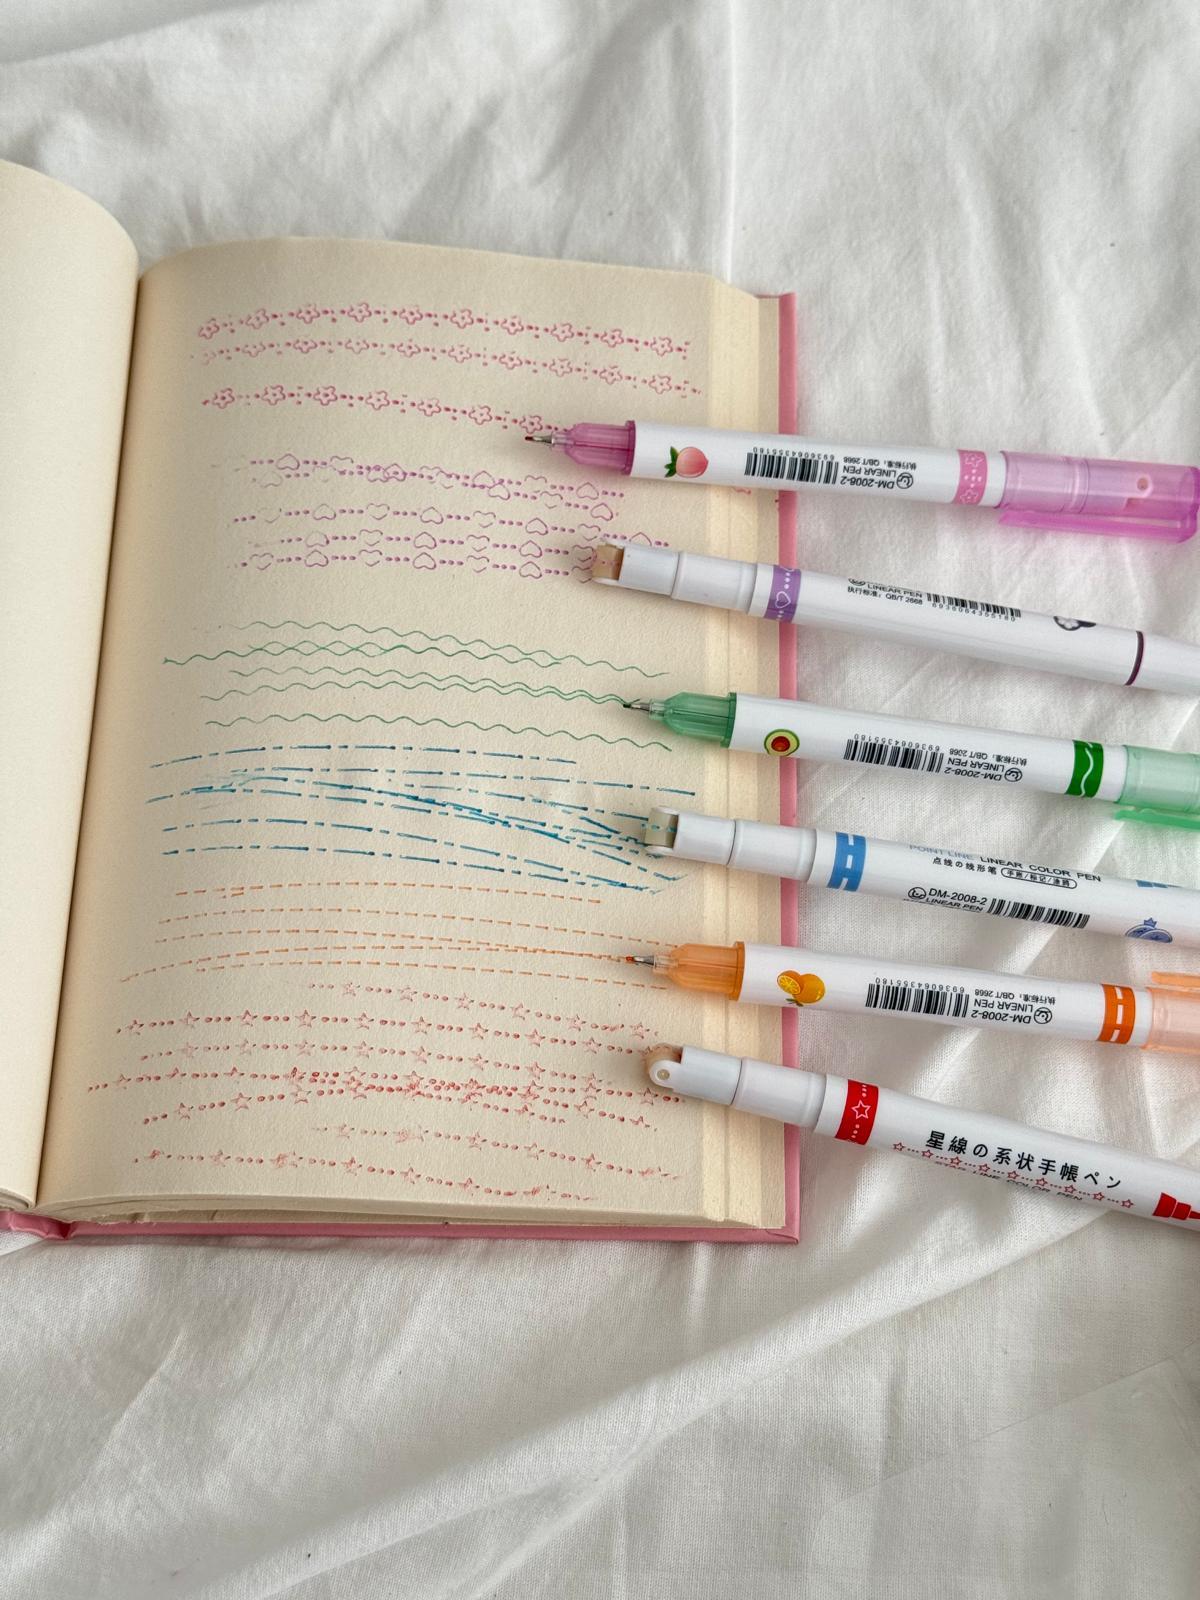 DM-2008-2
LINEAR PEN
执行标准：QB/T 2668
6936064355180
LINEAR PEN
执行标准：QB/T 2668
6936064355180
DM-2008-2
LINEAR PEN
执行标准：QB/T 2668
6936064355180
POINT LINE LINEAR COLOR PEN
点线の线形笔 手账/标记/涂鸦
DM-2008-2
LINEAR PEN
DM-2008-2
LINEAR PEN
执行标准：QB/T 2668
6936064355180
星線の系状手帳ペン
STAR LINE COLOR PEN